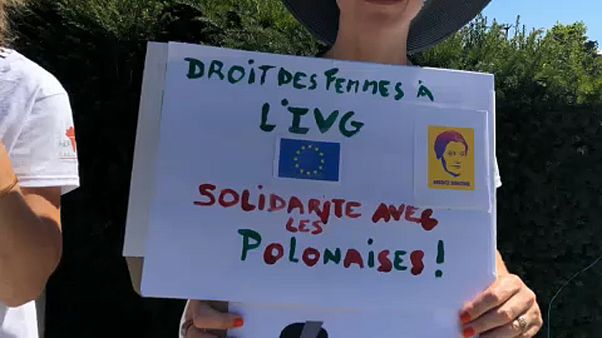 DROIT DES FEMMES À
L'IVG
SOLIDARITE AVEC
LES
POLONAISES !
MERCI SIMONE